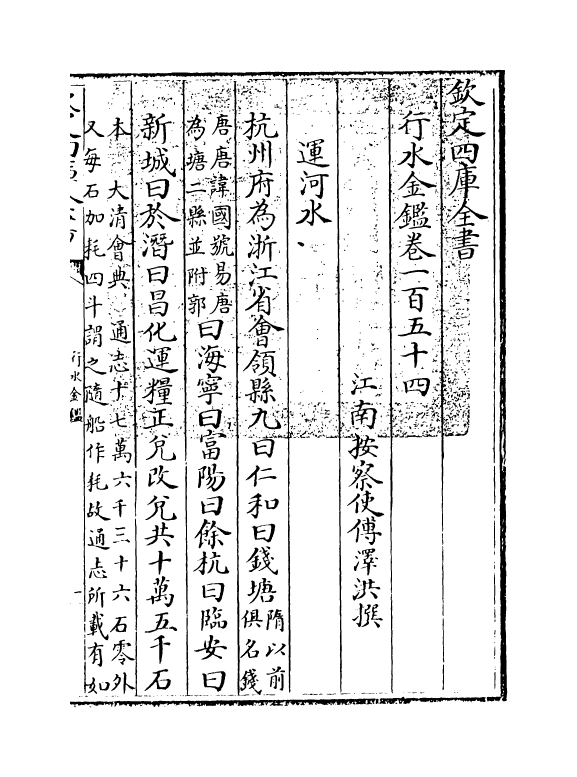 欽定四庫全書
行水金鑑卷一百五十四
江南按察使傅澤洪撰
運河水
杭州府為浙江省會領縣九曰仁和曰錢塘隋以前
俱名錢
唐唐諱國號易唐
為塘二縣並附郭曰海寧曰富陽曰餘杭曰臨安曰
新城曰於潛曰昌化運糧正兌改兌共十萬五千石
本 大清會典 通志十七萬六千三十六石零外
又每石加耗四斗謂之隨船作耗故通志所載有如
行水金鑑
一